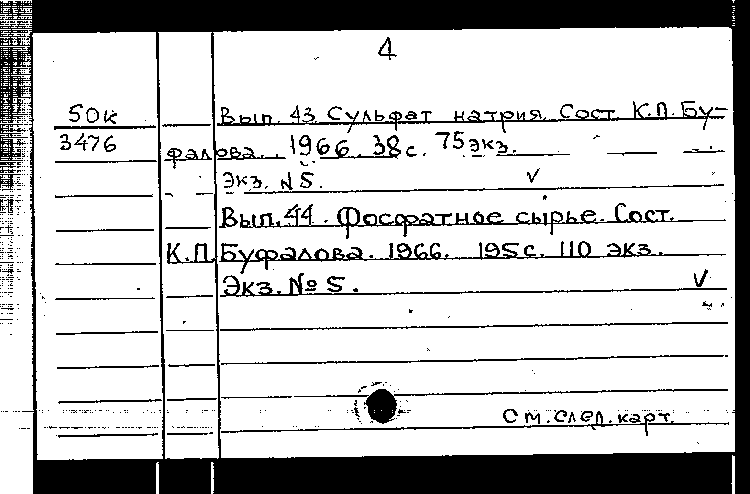 4
50к Вып. 43 Сульфат натрия. Сост. К.П. Бу-
3476 фалова. 1966. 38с. 75 экз.
Экз. N 5. V
Вып. 44. Фосфатное сырье. Сост.
К.П. Буфалова. 1966. 195 с. 110 экз.
Экз. № 5. V
См. след. карт.